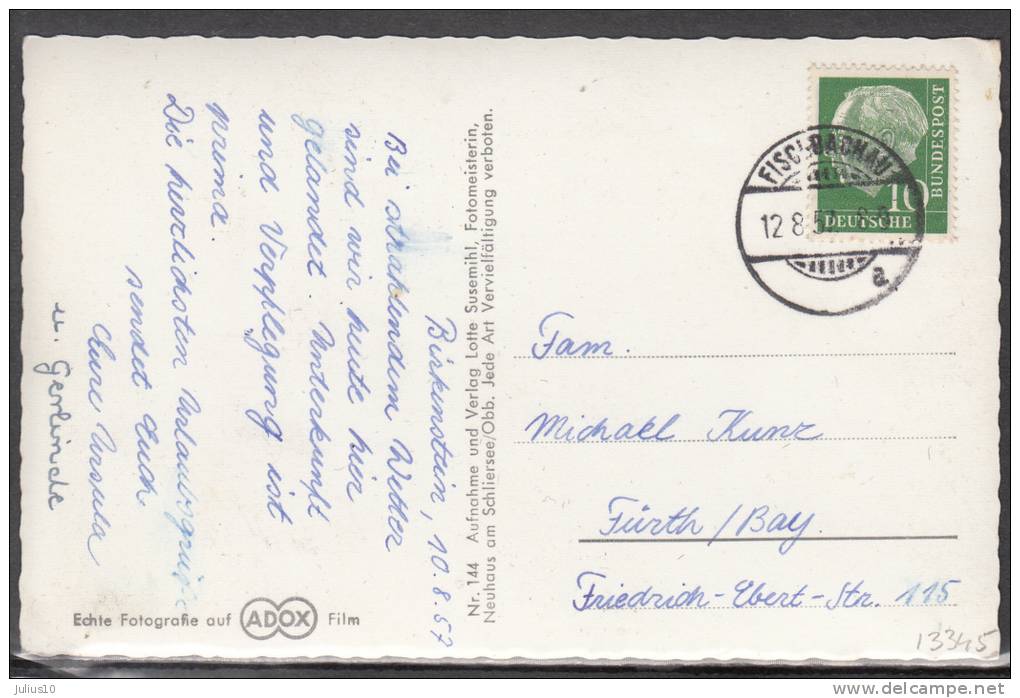 Birkenstein, 10.8.57
Bei strahlendem Wetter
sind wir heute hier
gelandet. Unterkunft
und Verpflegung ist
prima.
Die herzlichsten Urlaubsgrüße
sendet Euch
Eure Ursula
u. Gerlinde
Nr. 144 Aufnahme und Verlag Lotte Susemihl, Fotomeisterin,
Neuhaus am Schliersee/Obb. Jede Art Vervielfältigung verboten.
Echte Fotografie auf ADOX Film
BUNDESPOST
10
DEUTSCHE
FISCHBACHAU
12 8 57
a
Fam.
Michael Kunz
Fürth / Bay.
Friedrich-Ebert-Str. 115
13345
julius10
www.delcampe.net